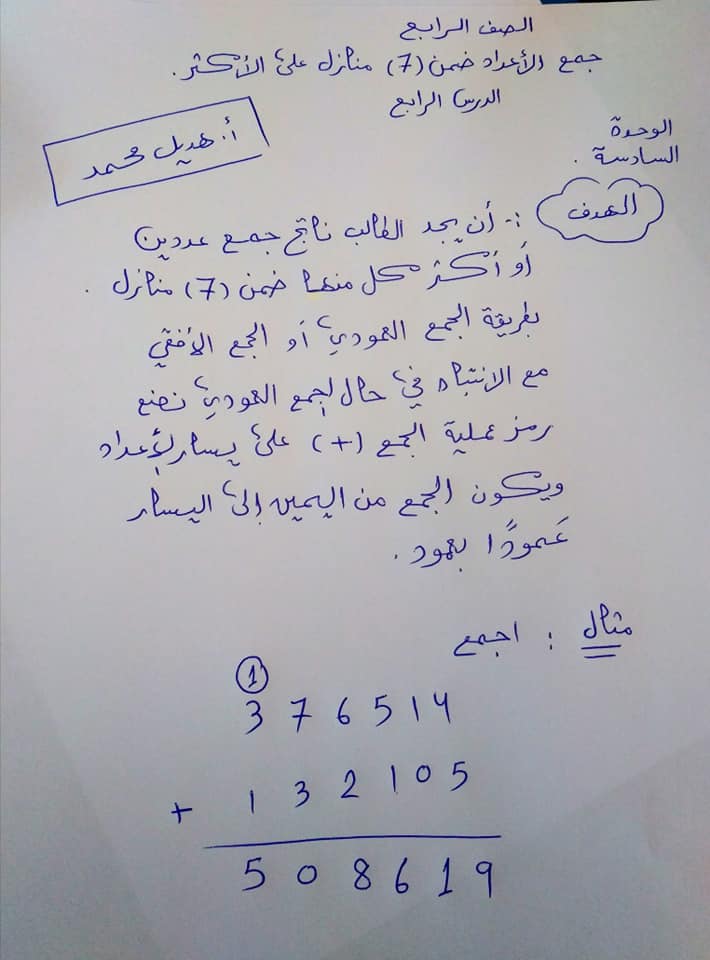 الصف الرابع
جمع الأعداد ضمن (7) منازل على الأكثر.
الدرس الرابع
أ. هديل محمد
الوحدة
السادسة.
الهدف :- أن يجد الطالب ناتج جمع عددين
أو أكثر كل منها ضمن (7) منازل.
بطريقة الجمع العمودي أو الجمع الأفقي
مع الانتباه في حال الجمع العمودي نضع
رمز عملية الجمع (+) على يسار الأعداد
ويكون الجمع من اليمين إلى اليسار
عَمودًا بعمود.
مثال : اجمع
1
3 7 6 5 1 4
+ 1 3 2 1 0 5
5 0 8 6 1 9